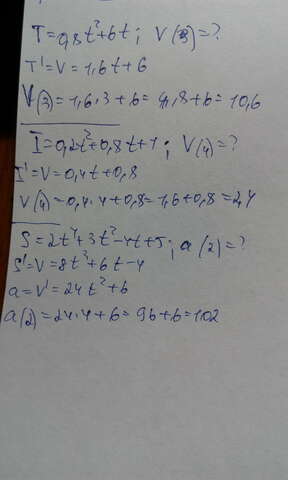 T=0,8t²+6t; V(3)=?
T'=V=1,6t+6
V(3)=1,6·3+6=4,8+6=10,6
I=0,2t²+0,8t+1; V(4)=?
I'=V=0,4t+0,8
V(4)=0,4·4+0,8=1,6+0,8=2,4
S=2t⁴+3t²-4t+5; a(2)=?
S'=V=8t³+6t-4
a=V'=24t²+6
a(2)=24·4+6=96+6=102